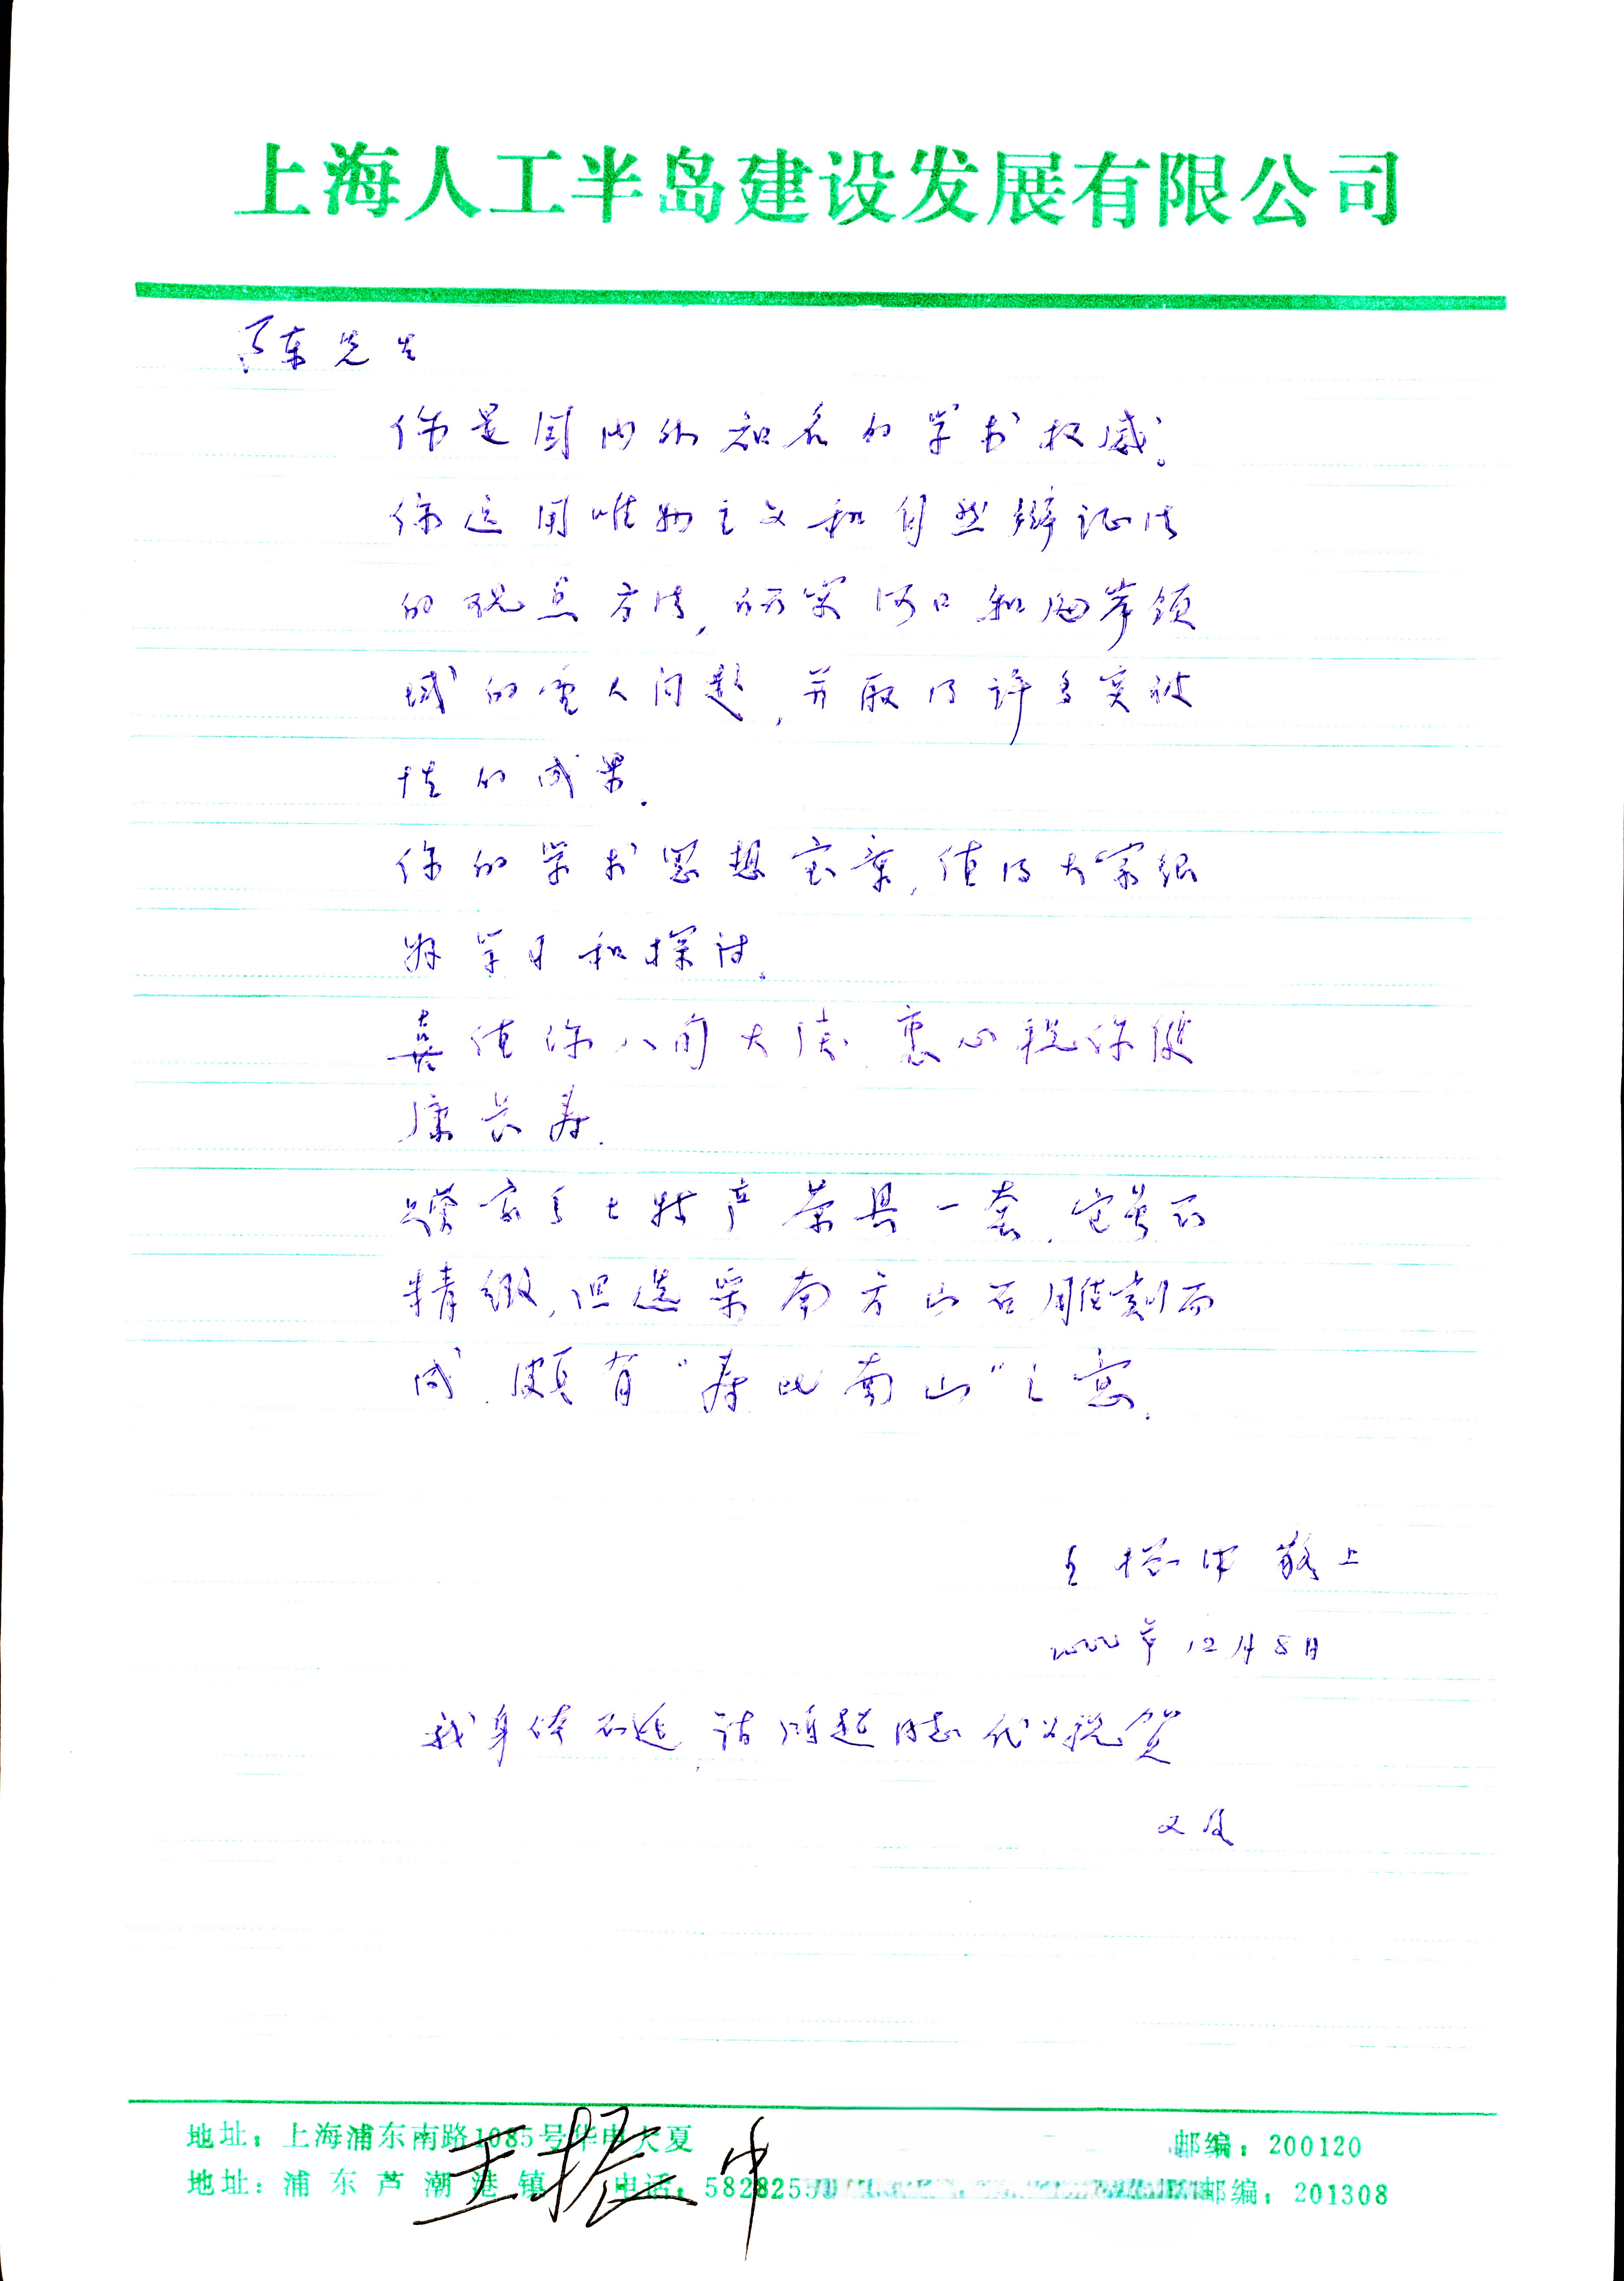 上海人工半岛建设发展有限公司
陈先生
你是国内外知名的学术权威。
你运用唯物主义和自然辩证法
的观点方法,研究河口和海岸领
域的重大问题,并取得许多突破
性的成果.
你的学术思想宝章,值得大家组
织学习和探讨.
喜值你八旬大庆.衷心祝你健
康长寿.
家乡土特产茶具一套.它虽不
精緻,但选采南方山石雕刻而
成.颇有"寿比南山"之意.
王振中敬上
2000年12月8日
我身体不适,请顺超同志代公祝贺
又及
地址:上海浦东南路1085号华申大厦
邮编:200120
地址:浦东芦潮港镇
电话:5828255
邮编:201308
王振中